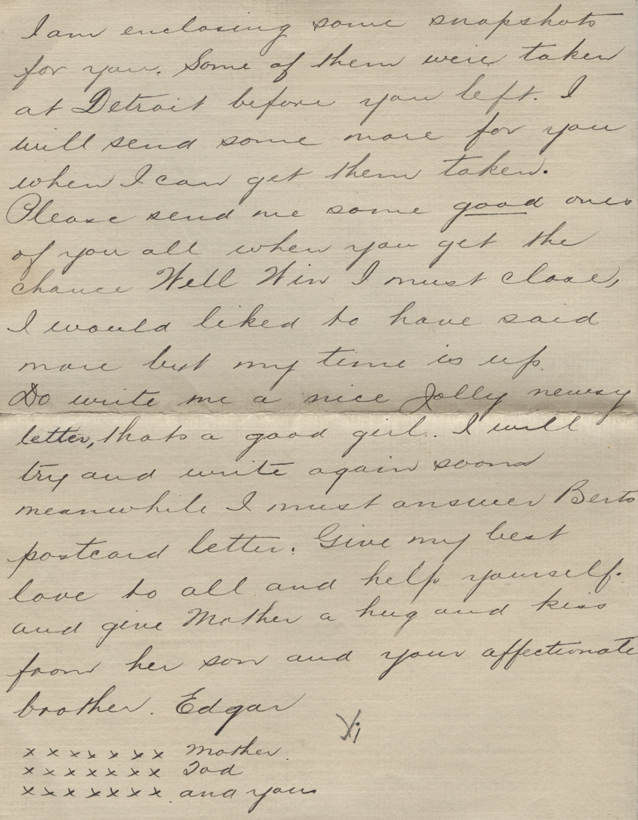 I am enclosing some snapshots
for you. Some of them were taken
at Detroit before you left. I
will send some more for you
when I can get them taken.
Please send me some good ones
of you all when you get the
chance Well Win I must close,
I would liked to have said
more but my time is up.
Do write me a nice Jolly newsy
letter, thats a good girl. I will
try and write again soon
meanwhile I must answer Berts
postcard letter. Give my best
love to all and help yourself.
and give Mother a hug and kiss
from her son and your affectionate
brother. Edgar
x x x x x x x Mother.
x x x x x x x Dad
x x x x x x x and you